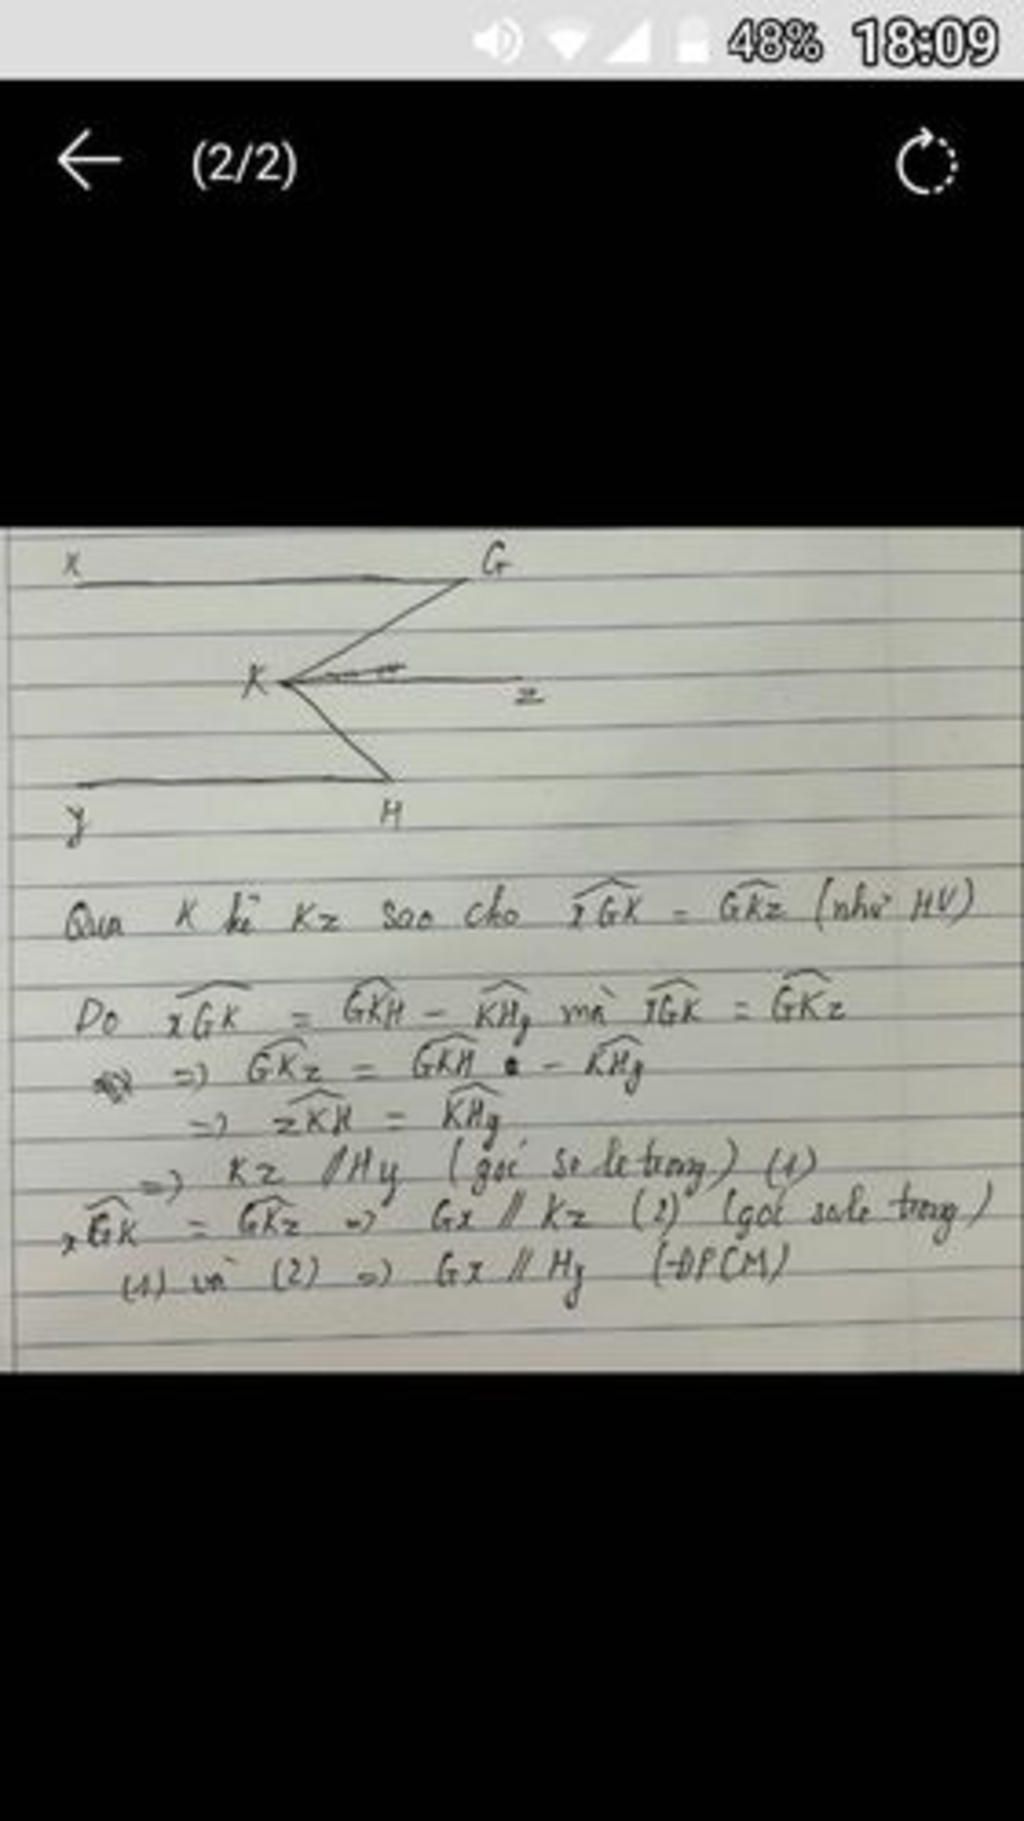 48% 18:09
(2/2)
x G
K z
y H
Qua K kẻ Kz sao cho xGK = GKz (như HV)
Do xGK = GKH - KHy mà xGK = GKz
=> GKz = GKH - KHy
=> zKH = KHy
=> Kz // Hy (góc so le trong) (1)
xGK = GKz => Gx // Kz (2) (góc so le trong)
(1) và (2) => Gx // Hy (ĐPCM)